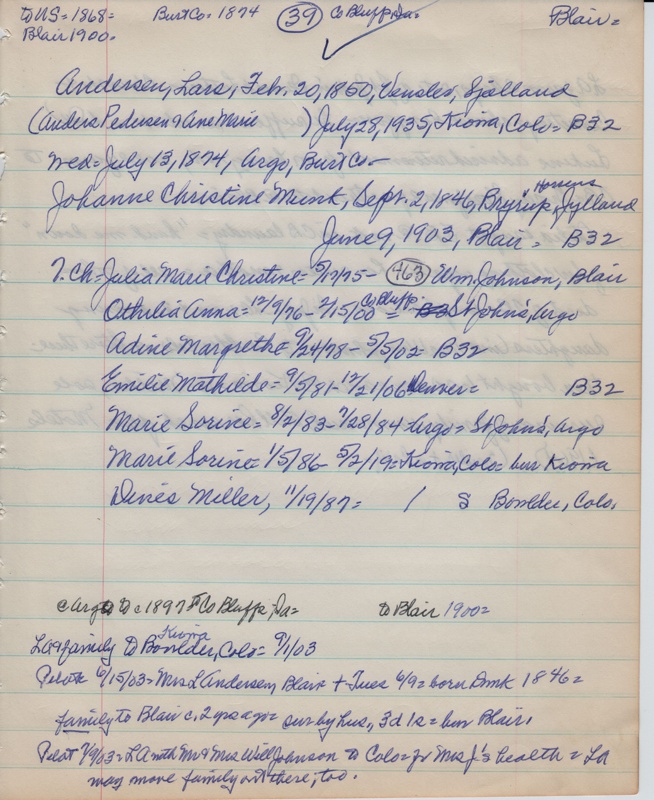 to US = 1868 = Burt Co = 1874 39 Co Bluffs, Ia = Blair =
Blair 1900 =
Andersen, Lars, Feb. 20, 1850, Venslev, Sjælland
(Anders Pedersen & Ane Marie ) July 28, 1935, Kiowa, Colo = B32
wed = July 13, 1874, Argo, Burt Co =
Horsens
Johanne Christine Munk, Sept. 2, 1846, Bryrup, Jylland
June 9, 1903, Blair = B32
7. Ch = Julia Marie Christine = 5/17/75 - 463 Wm. Johnson, Blair
Othilia Anna = 12/9/76 - 2/15/00 Co Bluffs = St John's, Argo
Adine Margrethe = 9/24/78 - 5/5/02 = B32
Emilie Mathilde = 9/5/81 - 12/21/06 Denver = B32
Marie Sorine = 8/2/83 - 7/28/84 = Argo = St John's, Argo
Marie Sorine = 1/5/86 - 5/2/19 = Kiowa, Colo = bur Kiowa
Miller, 11/19/87 = / S Boulder, Colo.
c Argo to c 1897 to Co Bluffs, Ia = to Blair 1900 =
Kiowa
LA & family to Boulder, Colo = 9/1/03
Pilot 6/15/03 = Mrs L Andersen, Blair + Tues 6/9 = born Dmk 1846 =
family to Blair c. 2 yrs ago = sur by hus, 3 d 1 s = bur Blair.
Pilot 7/9/03 = LA with Mr & Mrs Will Johnson to Colo = for Mrs J's health = LA
may move family out there, too.